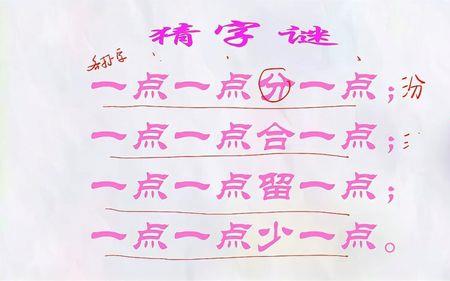 猜字谜
一点一点分一点；汾
一点一点合一点；氵
一点一点留一点；
一点一点少一点。